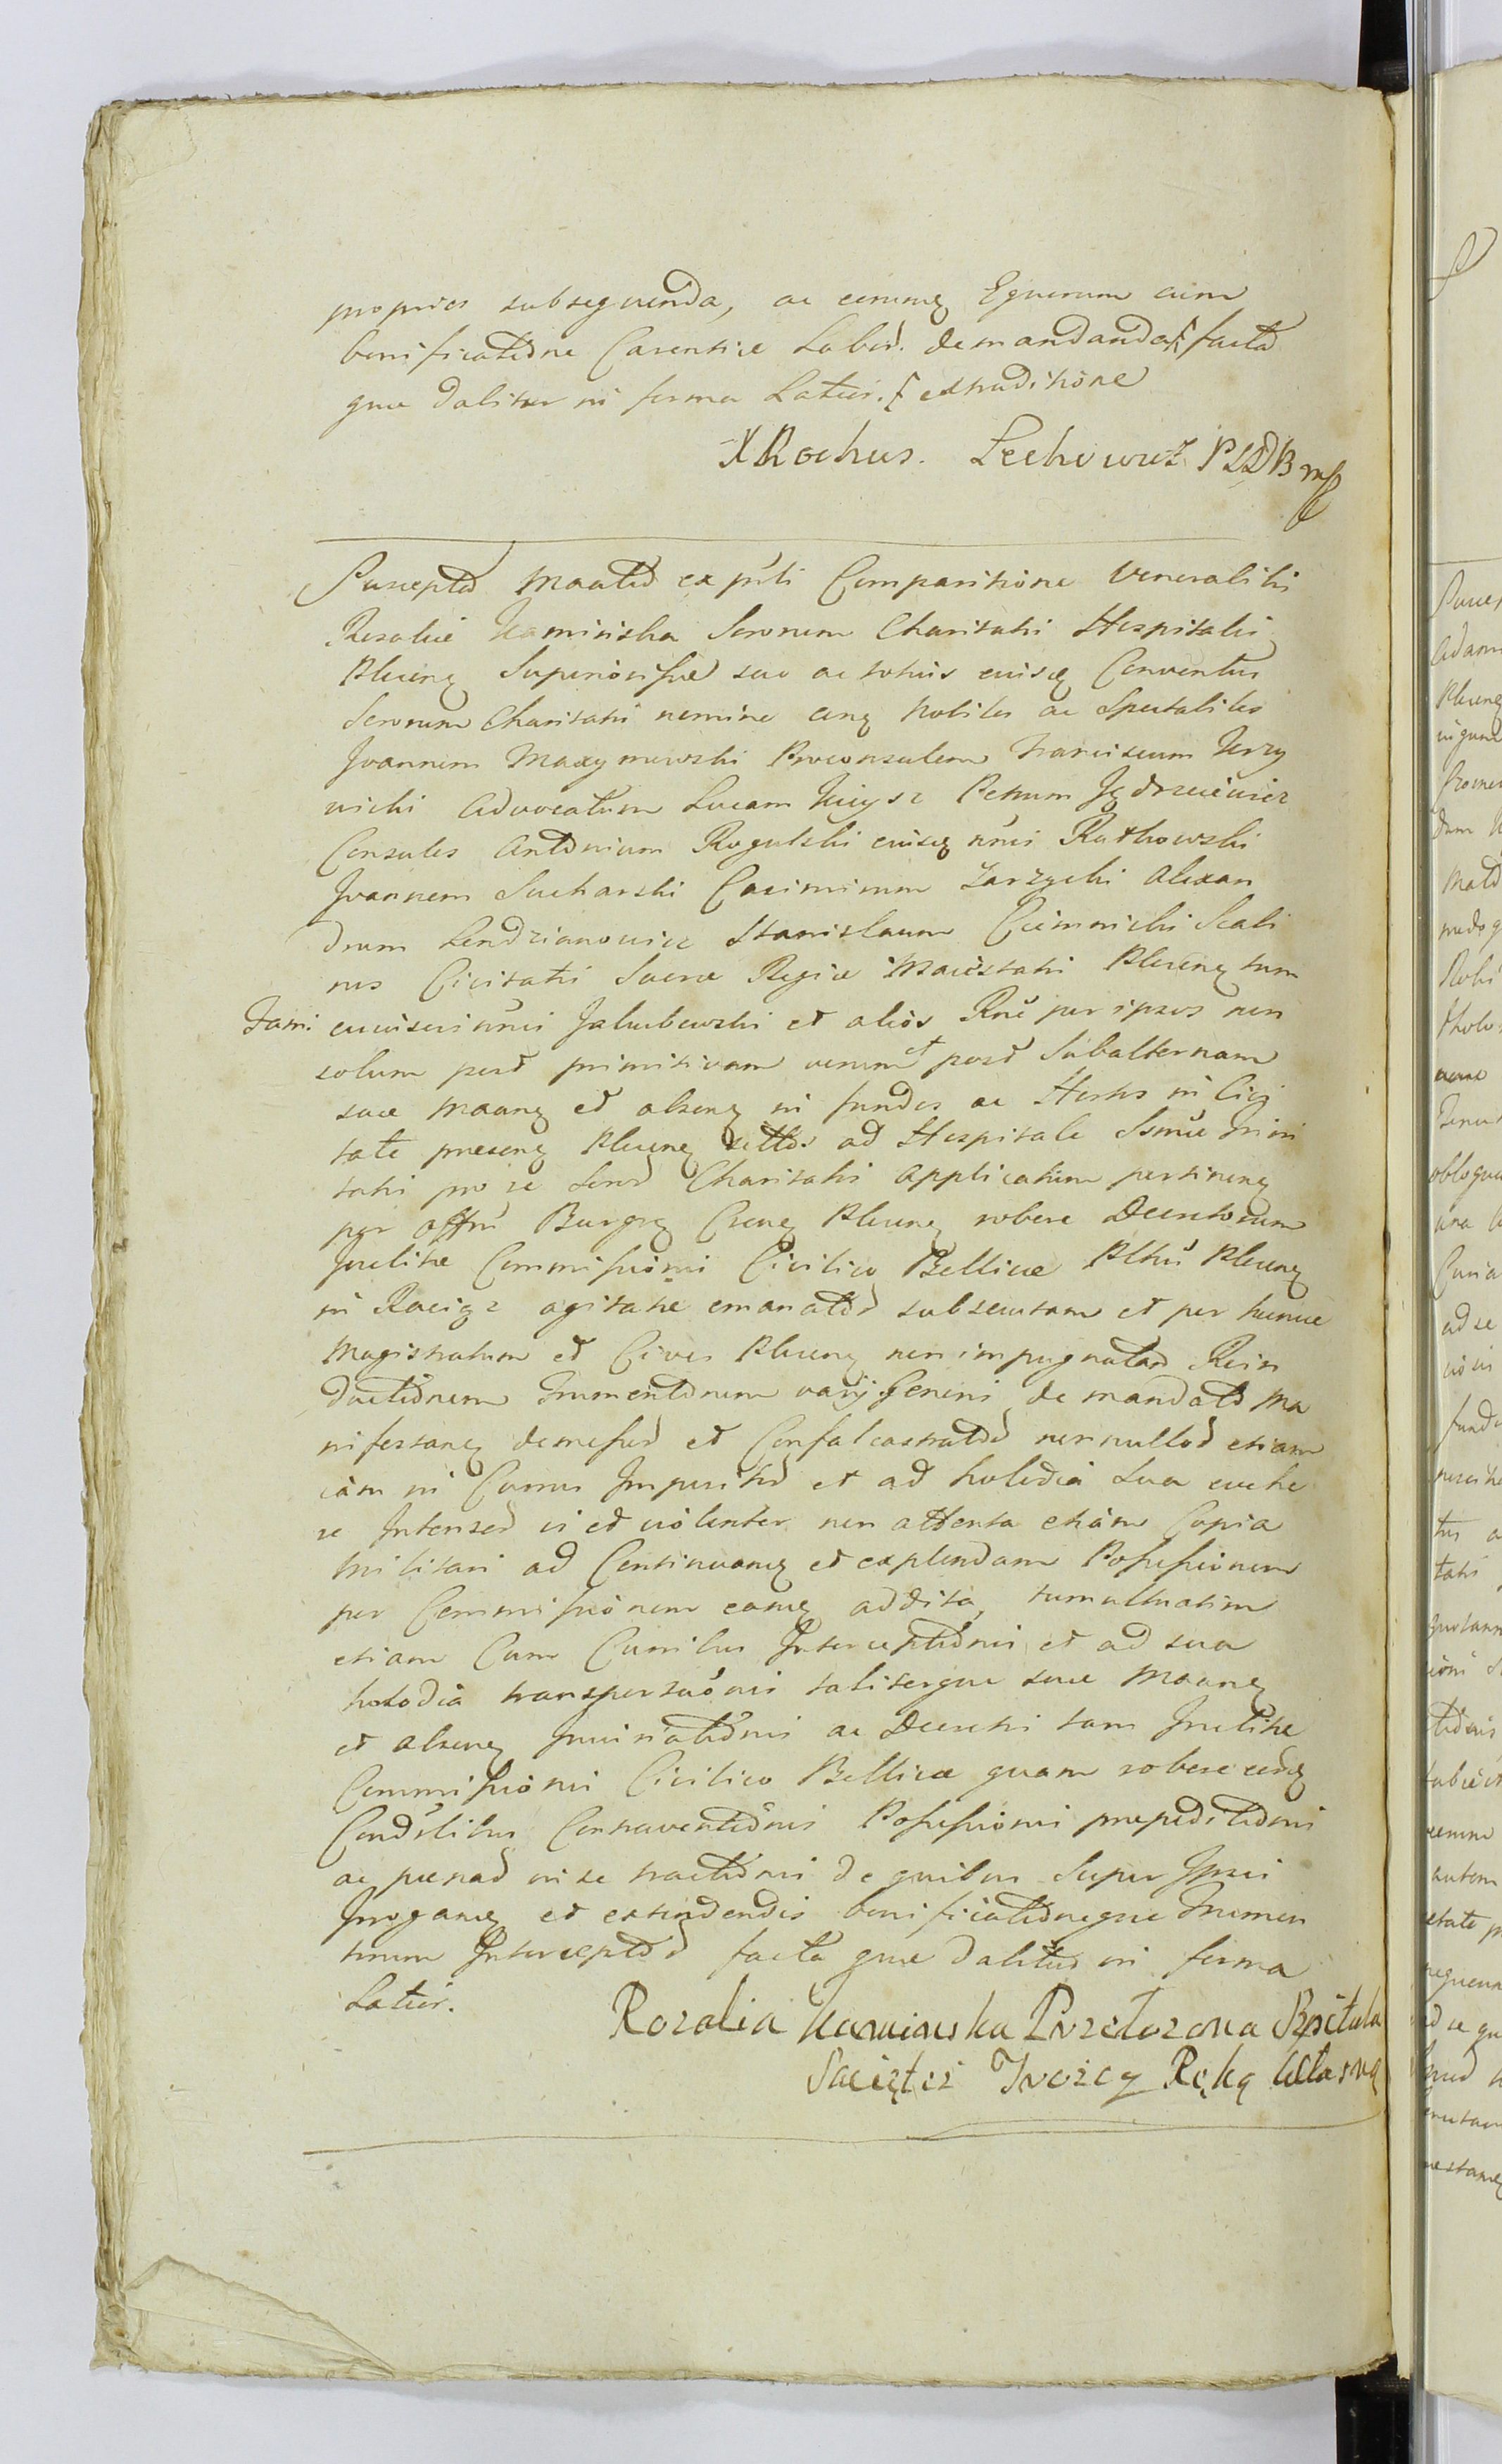 proprios subsequenda, ac eorumq Equorum cum
bonificatione Carentiae Labor. demandanda facta
que daliter in forma Latior. extraditione
X Rochus. Lechowicz PSDB mp
Suscepto Maato ex pnti Comparitione Venerabilis
Rosaliae Kaminska Sororum Charitatis Hospitalis
Plocenq Superiorissae suo ac totius eiusq Conventus
Sororum Charitatis nomine cnq Nobiles ac Spectabiles
Joannem Maxymowski Proconsulem Franciscum Krzy
nicki Advocatum Lucam Kicysz Petrum Jędrzeiewicz
Consules Antonium Rogulski eiusq nnis Rutkowski
Joannem Sucharski Casimirum Zarzycki Alexan
drum Lendzianowicz Stanislaum Ciemnicki Scabi
nos Civitatis Sacrae Regiae Maiestatis Plocenq tum
Fami cuiuscunq nnis Jakubowski et alios Rne per ipsos non
solum post primitivam verum et post Subalternam
suae Maanq et absenq in fundos ac Hortos in Civi
tate praesenq Plocenq sittos ad Hospitale Ssmae Trini
tatis pro se Soror Charitatis applicatum pertinenq
per offm Burgrq Crenq Plocenq robore Decretorum
Inclitae Commissionis Civilico Bellicae Pltus Plocenq
in Raciąz agitatae emanator subsecutam et per hunce
Magistratum et Cives Plocenq non impugnatam Rein
ductionem Frumentorum varij Generis de mandato Ma
nifestanq demessor et Confalcastrator nonnullor etiam
iam in Currus Impositor et ad holodia sua evehe
re Intensor vi et violenter non attenta etiam Copia
Militari ad Continuanq et explendam Possessionem
per Commissionem eamq addita, tumultuatim
etiam Cum Curribus Interceptionis et ad sua
holodia transportaonis talitergue suae Maanq
et absenq Iniuriationis ac Decreti tam Inclitae
Commissionis Civilico Bellicae quam robore eodq
Conditlibus Contraventionis Possessionis praepeditionis
ac poenar in se tractionis de quibus super Ipsis
Irrogandq et extendendis bonificationeque Frumen
torum Interceptor facta que dalitur in forma
Latior.
Rozalia Kaminska Przełozona Szpitala
Swięteż Trożcy Ręką Własną